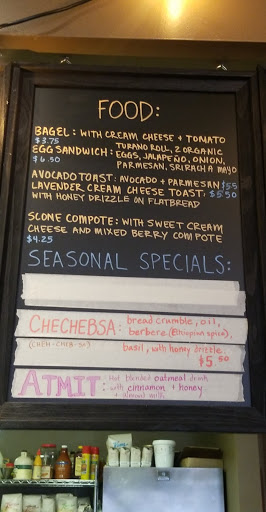 FOOD:
BAGEL: WITH CREAM CHEESE + TOMATO
$3.75
EGG SANDWICH: TURANO ROLL, 2 ORGANIC
$6.50 EGGS, JALAPEÑO, ONION,
PARMESAN, SRIRACHA MAYO
AVOCADO TOAST: AVOCADO + PARMESAN $5.5
LAVENDER CREAM CHEESE TOAST: $5.50
WITH HONEY DRIZZLE ON FLATBREAD
SCONE COMPOTE: WITH SWEET CREAM
CHEESE AND MIXED BERRY COMPOTE
$4.25
SEASONAL SPECIALS:
CHECHEBSA: bread crumble, oil,
berbere (Ethiopian spice),
(CHEH-CHEB-SO) basil, with honey drizzle.
$5.50
ATMIT: Hot blended oatmeal drink
with cinnamon + honey
+ almond milk